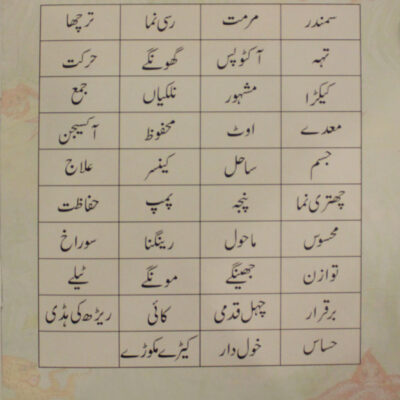 سمندر مرمت رسی نما ترچھا
تہہ آکٹوپس گھونگے حرکت
کیکڑا مشہور نلکیاں جمع
معدے اوٹ محفوظ آکسیجن
جسم ساحل کینسر علاج
چھتری نما پنجہ پمپ حفاظت
محسوس ماحول رینگنا سوراخ
توازن جھینگے مونگے ٹیلے
برقرار چہل قدمی کائی ریڑھ کی ہڈی
حساس خول دار کیڑے مکوڑے